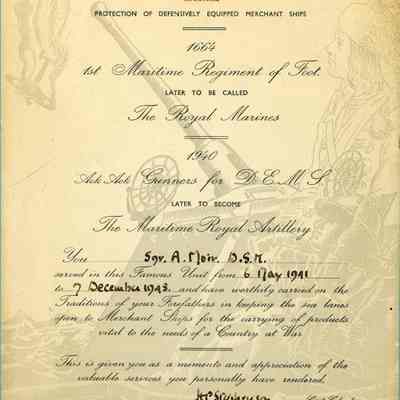 PROTECTION OF DEFENSIVELY EQUIPPED MERCHANT SHIPS
1664
1st Maritime Regiment of Foot.
LATER TO BE CALLED
The Royal Marines
1940
Ack Ack Gunners for D.E.M.S.
LATER TO BECOME
The Maritime Royal Artillery.
You Sgr. A. Moir. D.S.M.
served in this Famous Unit from 6 May 1941
to 7 December 1943. and have worthily carried on the
Traditions of your Forefathers in keeping the sea lanes
open to Merchant Ships for the carrying of products
vital to the needs of a Country at War
This is given you as a memento and appreciation of the
valuable services you personally have rendered.